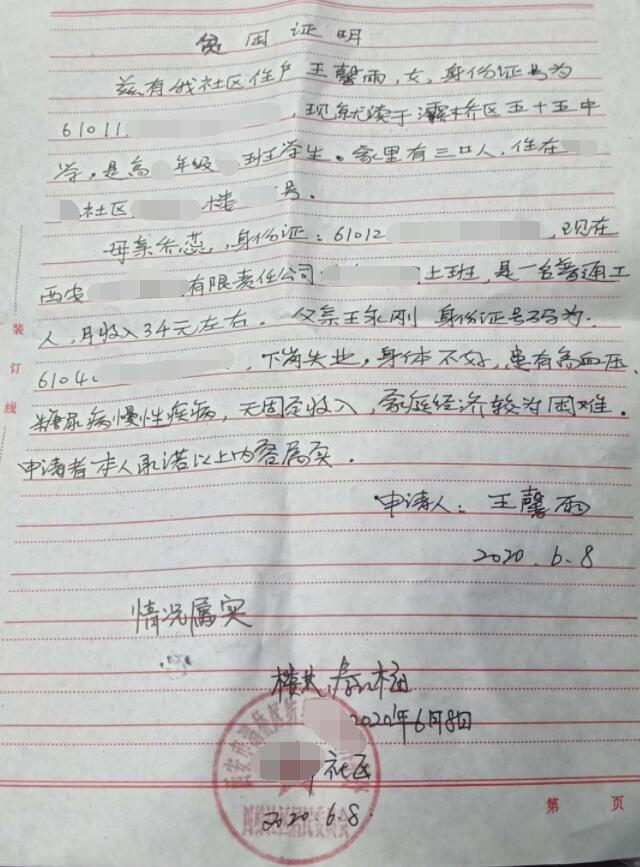 贫困证明
兹有我社区住户王馨雨,女,身份证号为
61011 ,现就读于灞桥区五十五中
学,是高 年级 班学生。家里有三口人,住在
社区 楼 号。
母亲乔蕊,身份证:61012 ,现在
西安 有限责任公司 上班,是一名普通工
人,月收入34元左右。父亲王永刚 身份证号码为:
6104 ,下岗失业,身体不好,患有高血压、
糖尿病慢性疾病,无固定收入,家庭经济较为困难。
申请者本人承诺以上内容属实。
申请人:王馨雨
2020.6.8
情况属实
2020年6月8日
社区
2020.6.8.
装
订
线
第 页